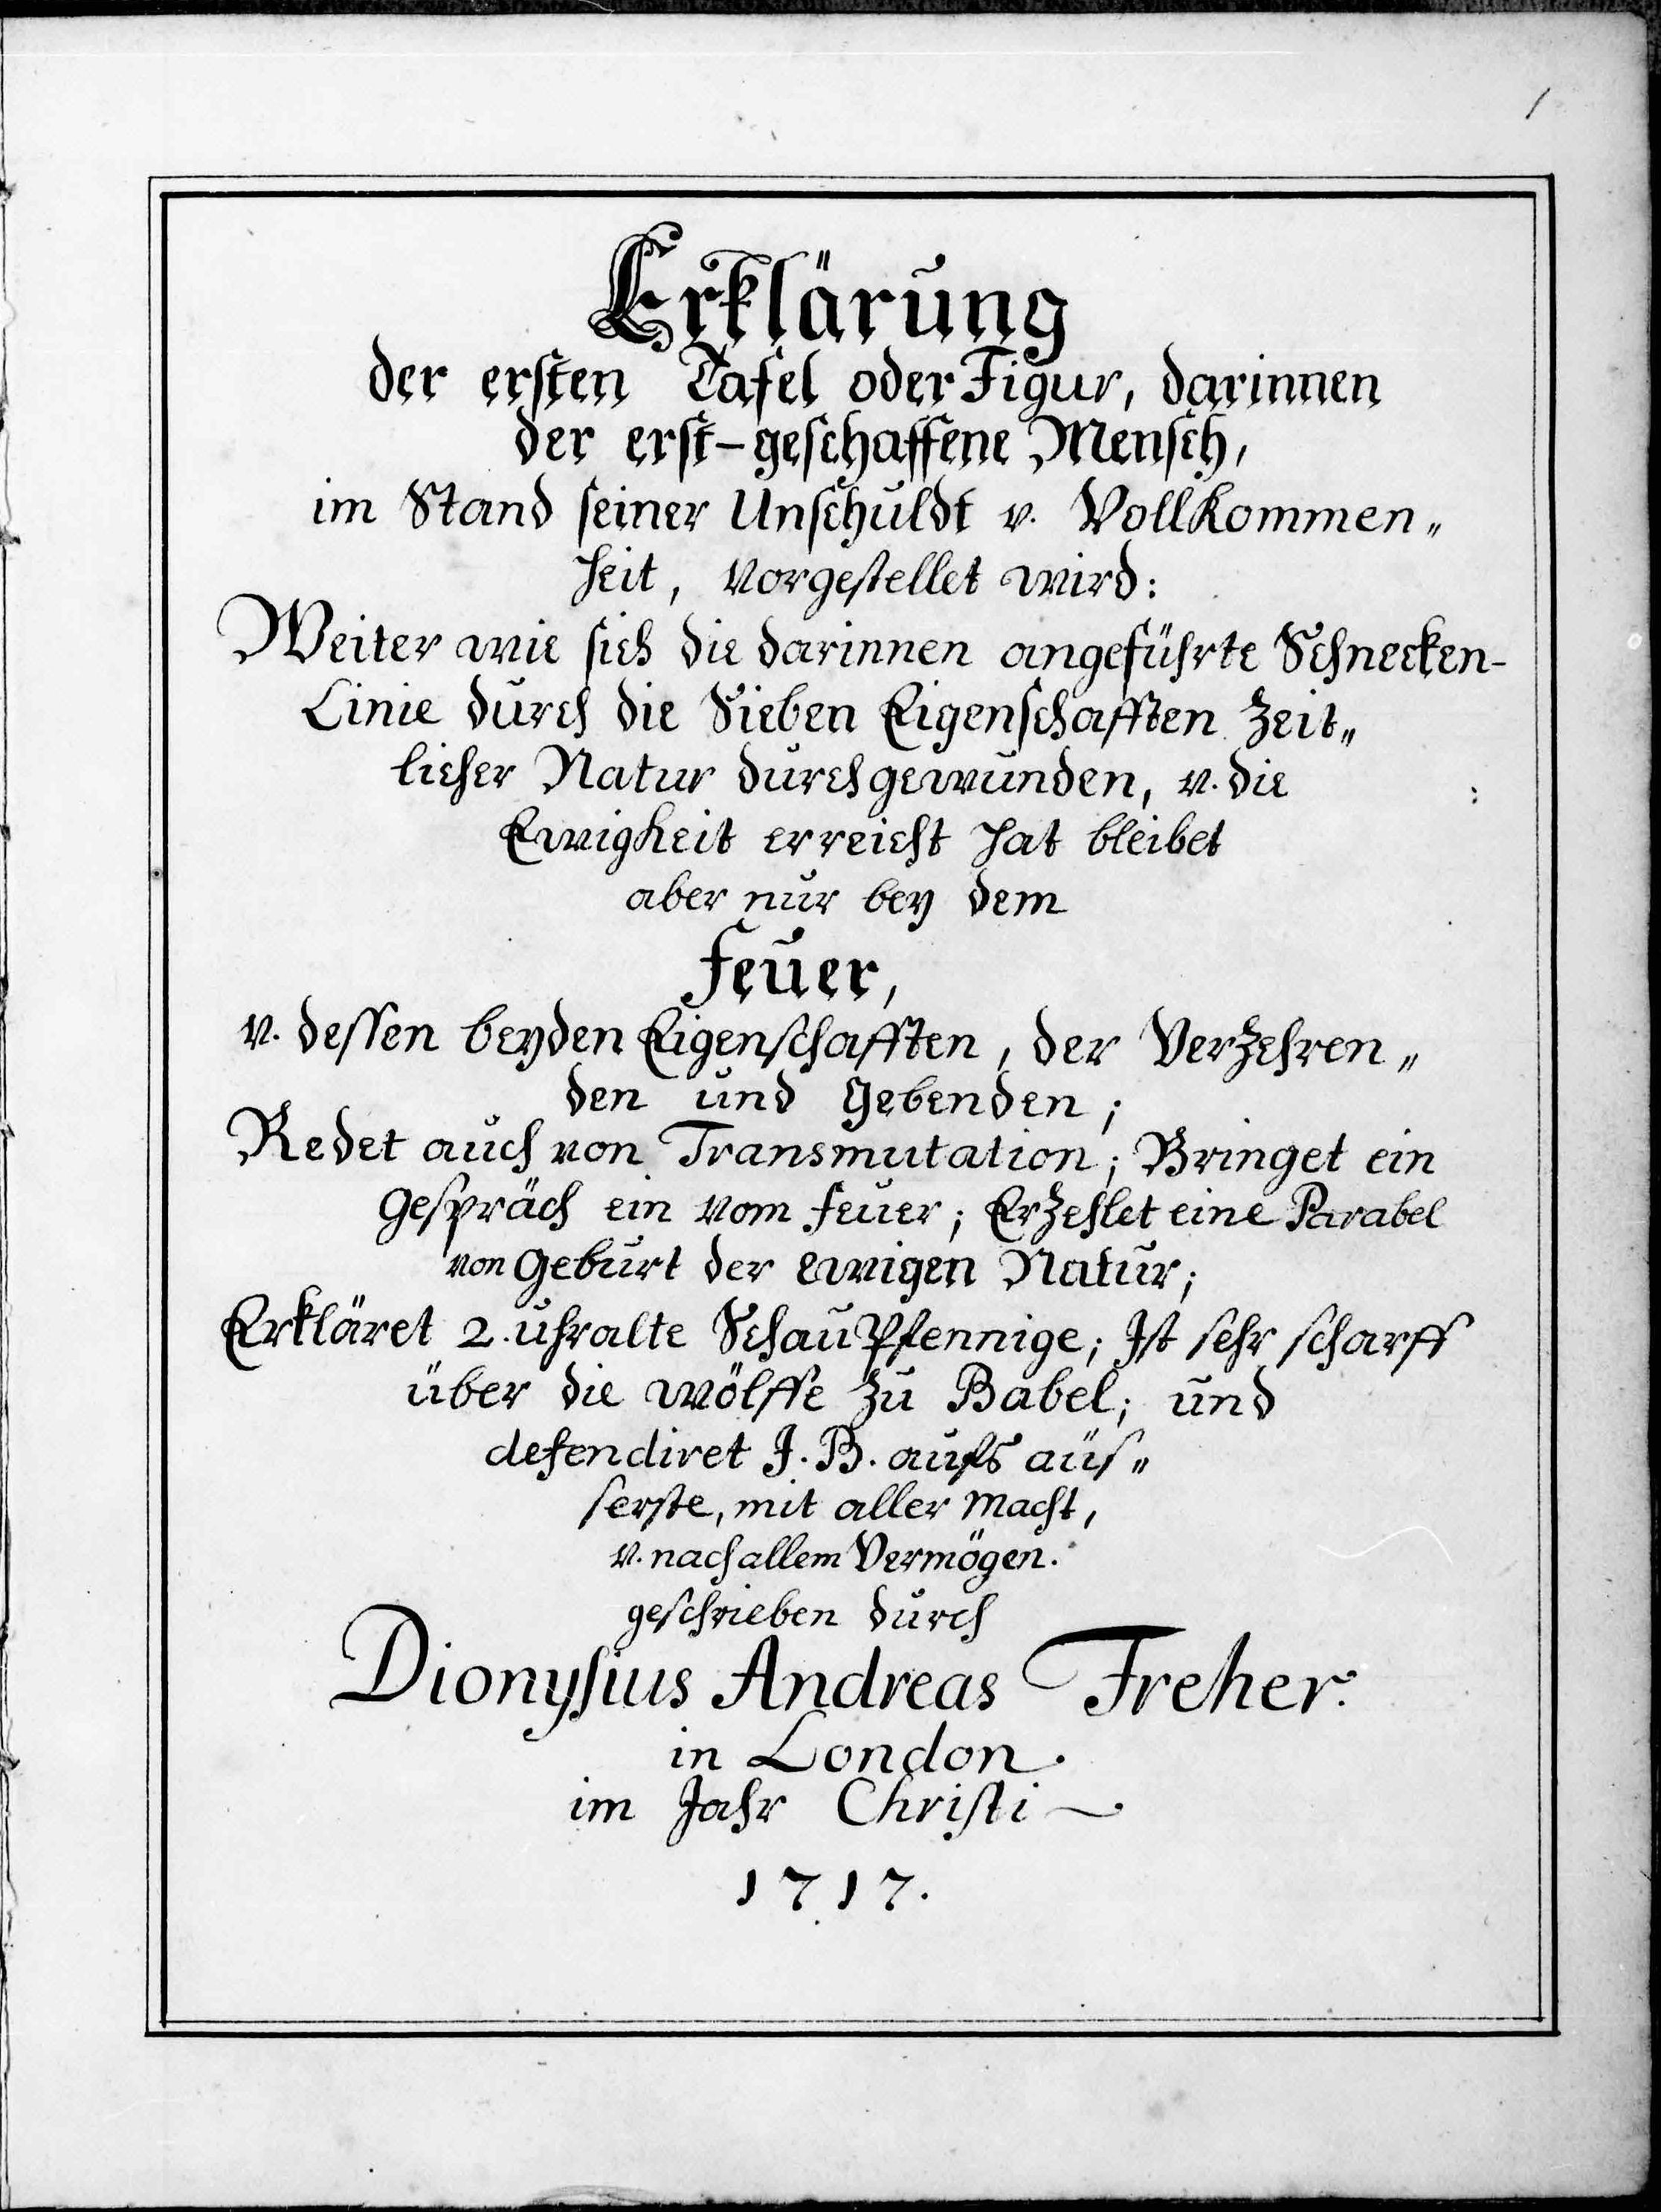 1
Erklärung
der ersten Tafel oder Figur, darinnen
der erst-geschaffene Mensch,
im Stand seiner Unschuldt v. Vollkommen„
heit, vorgestellet wird:
Weiter wie sich die darinnen angeführte Schnecken-
Linie durch die Sieben Eigenschafften Zeit„
licher Natur durchgewunden, v. die
Ewigkeit erreicht hat bleibet
aber nur bey dem
Feuer,
v. dessen beyden Eigenschafften, der Verzehren„
den und Gebenden;
Redet auch von Transmutation; Bringet ein
Gespräch ein vom Feuer; Erzehlet eine Parabel
von Geburt der ewigen Natur;
Erkläret 2. uhralte SchauPfennige; Ist sehr scharff
über die wölffe zu Babel; und
defendiret J. B. aufs äus„
serste, mit aller Macht,
v. nach allem Vermögen.
geschrieben durch
Dionysius Andreas Freher.
in London.
im Jahr Christi
1717.